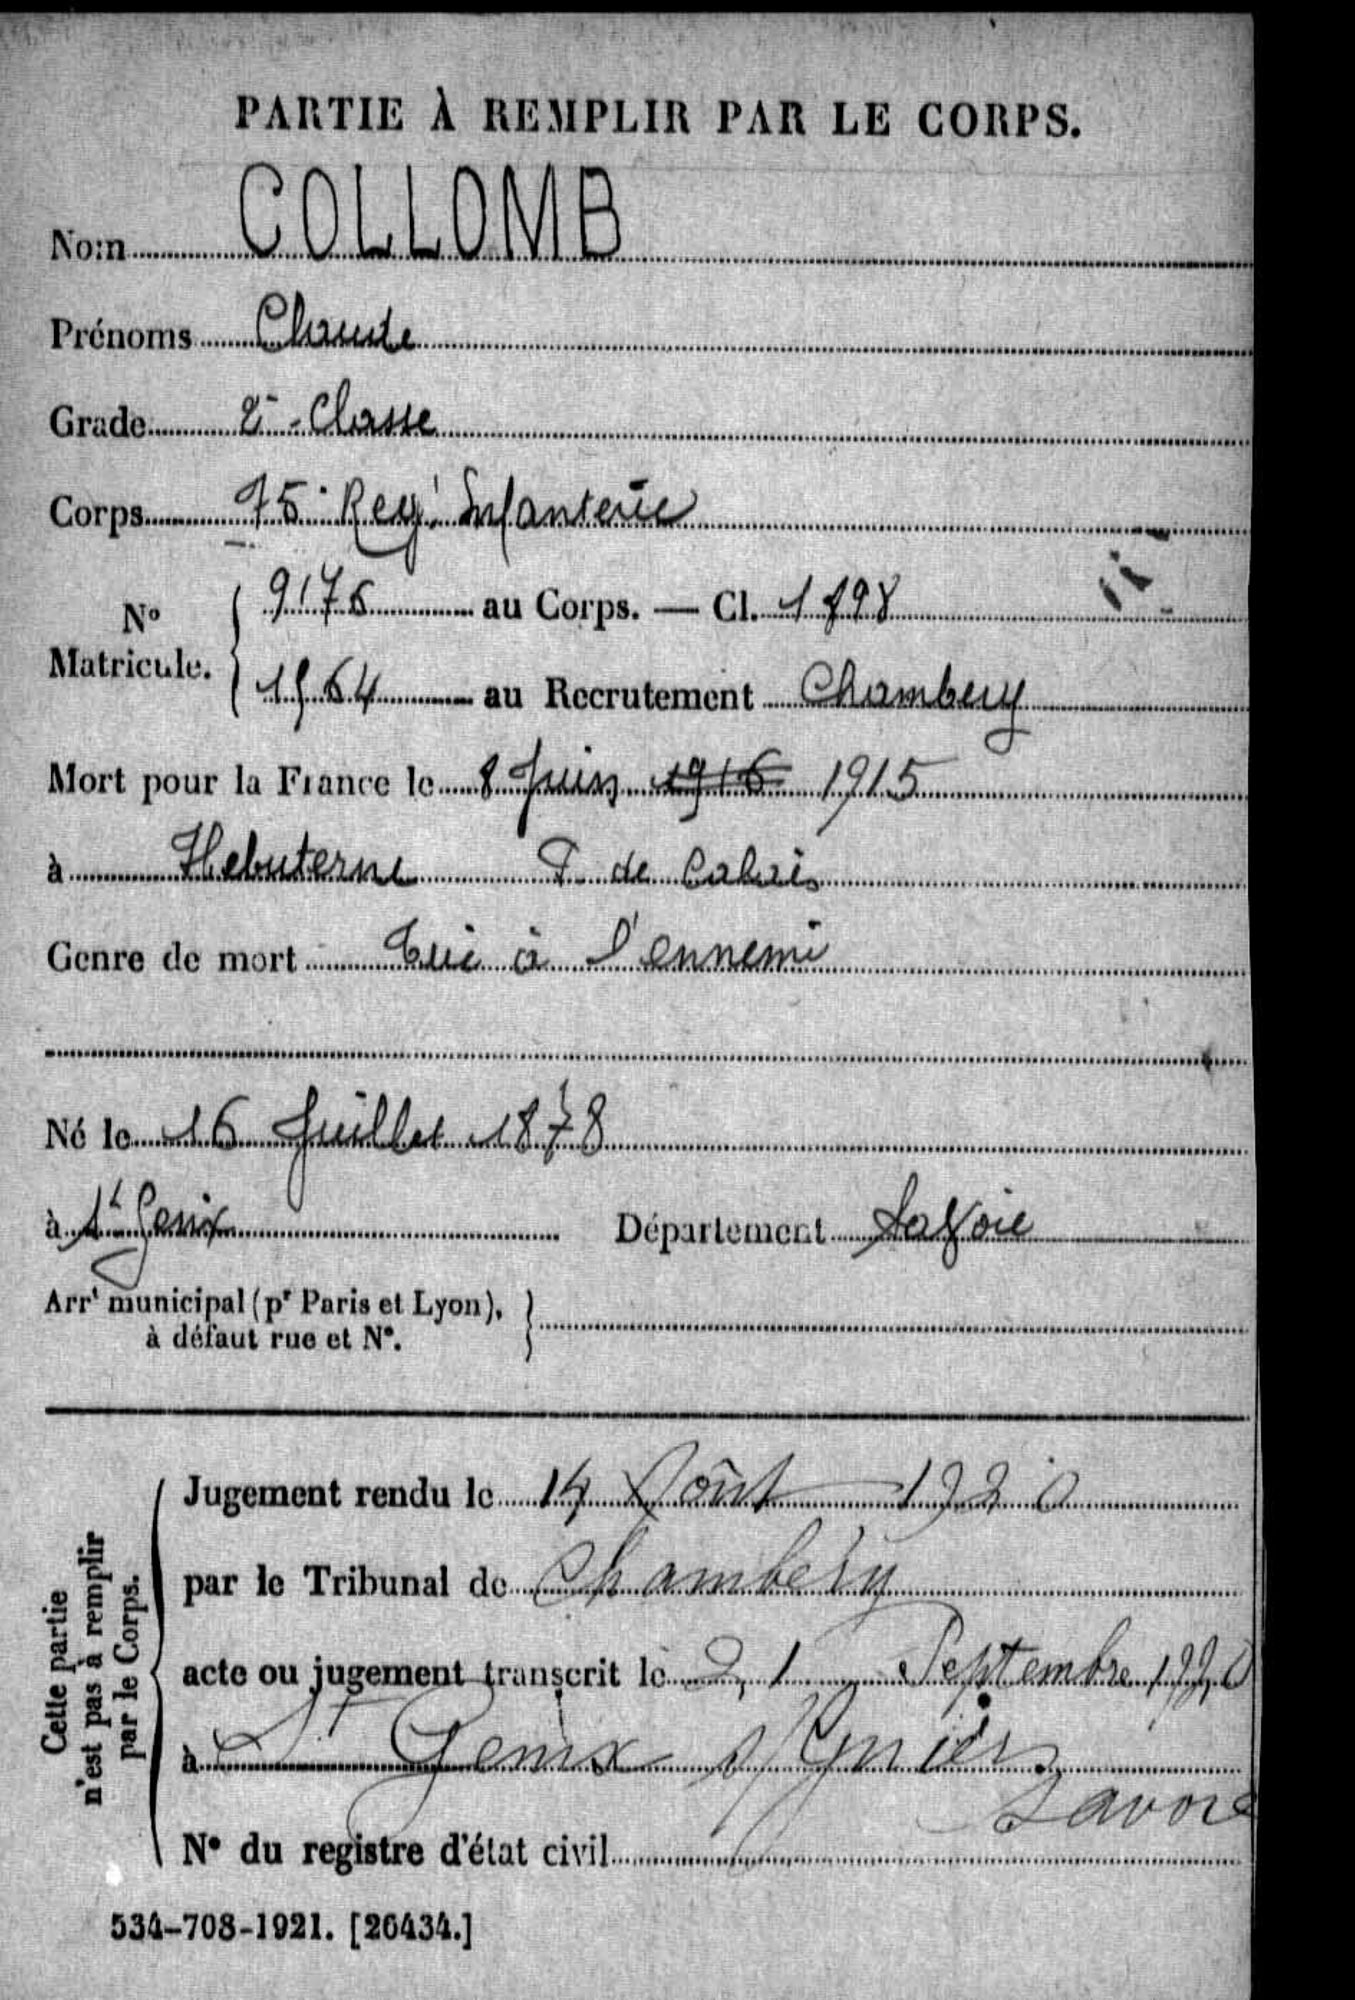 PARTIE À REMPLIR PAR LE CORPS.
Nom COLLOMB
Prénoms Claude
Grade 2e Classe
Corps 75e Regt Infanterie
No Matricule. 9176 au Corps. — Cl. 1898
1564 au Recrutement Chambery
Mort pour la France le 8 Juin 1916 1915
à Hebuterne P. de Calais
Genre de mort Tué à l'ennemi
Né le 16 Juillet 1878
à St Genix Département Savoie
Arrt municipal (pr Paris et Lyon),
à défaut rue et N°.
Cette partie
n'est pas à remplir
par le Corps.
Jugement rendu le 14 Août 1920
par le Tribunal de Chambéry
acte ou jugement transcrit le 21 Septembre 1920
à St Genix s/ Guiers
Savoie
N° du registre d'état civil
534-708-1921. [26434.]